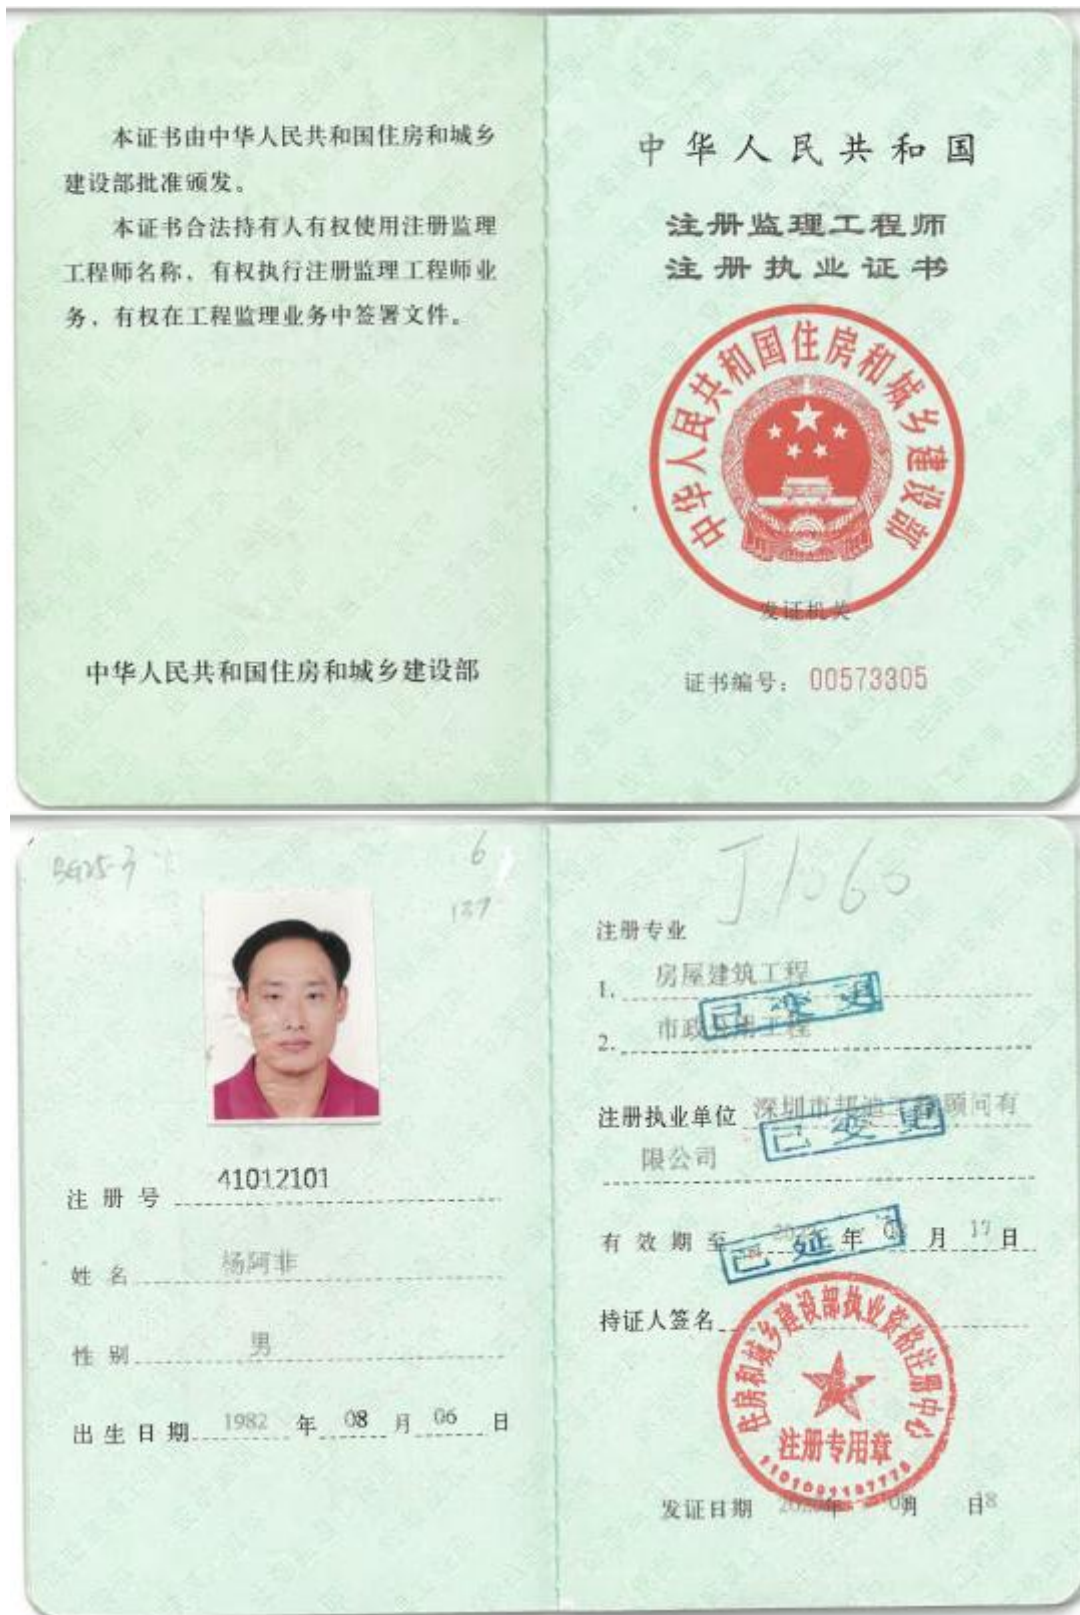 本证书由中华人民共和国住房和城乡
建设部批准颁发。
本证书合法持有人有权使用注册监理
工程师名称、有权执行注册监理工程师业
务、有权在工程监理业务中签署文件。
中华人民共和国住房和城乡建设部
中华人民共和国
注册监理工程师
注册执业证书
中华人民共和国住房和城乡建设部
发证机关
证书编号：00573305
6
127
注册号 41012101
姓名 杨阿非
性别 男
出生日期 1982 年 08 月 06 日
J1060
注册专业
1. 房屋建筑工程
已变更
2. 市政公用工程
注册执业单位 深圳市邦迪工程顾问有
已变更
限公司
有效期至 年 月 17 日
已延
持证人签名
住房和城乡建设部执业资格注册中心
注册专用章
发证日期 年 月 18 日